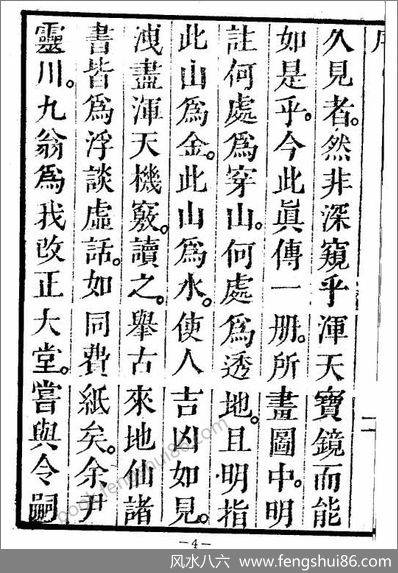 久見者。然非深窺乎渾天寶鏡而能
如是乎。今此眞傳一册。所畫圖中。明
註何處爲穿山。何處爲透地。且明指
此山爲金。此山爲水。使人吉凶如見。
洩盡渾天機竅。讀之。舉古來地仙諸
書皆爲浮談虛話。如同費紙矣。余尹
靈川。九翁爲我改正大堂。嘗與令嗣
二
-4-
风水八六·www.fengshui86.com